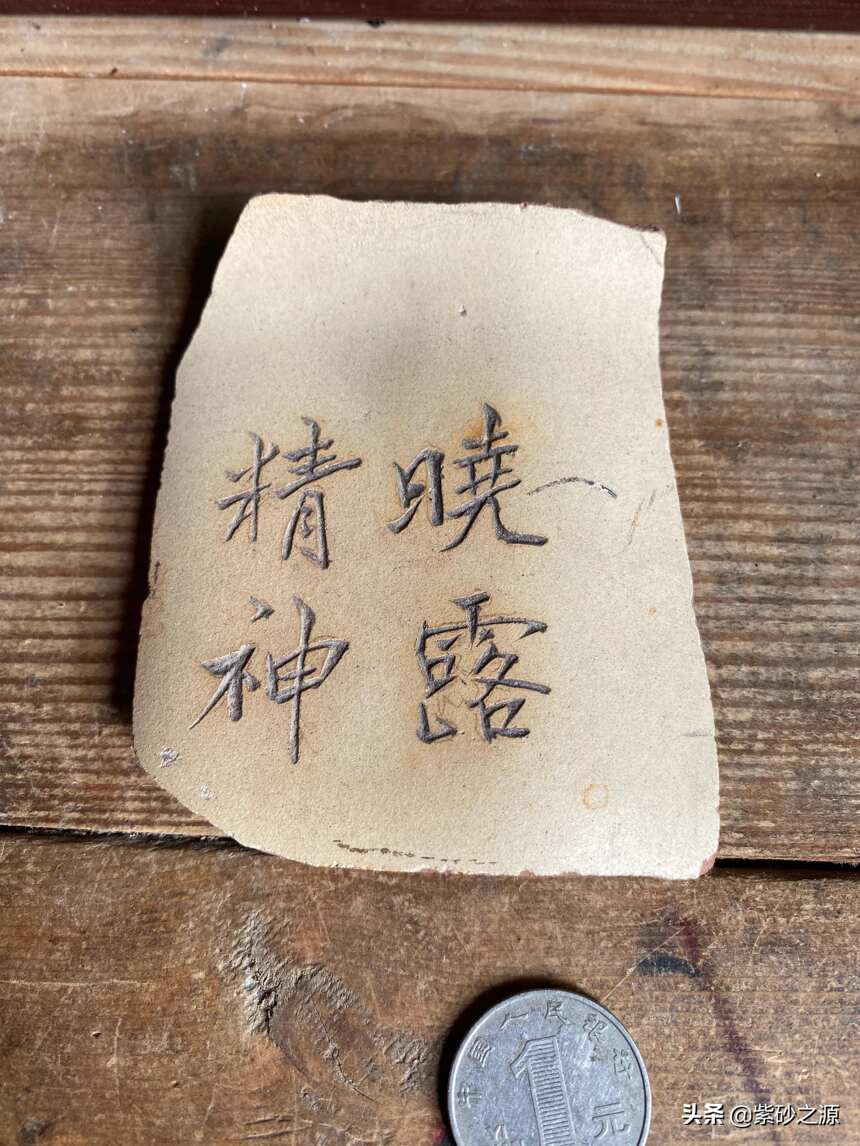 曉露
精神
中國人民銀行
1元
头条 @紫砂之源